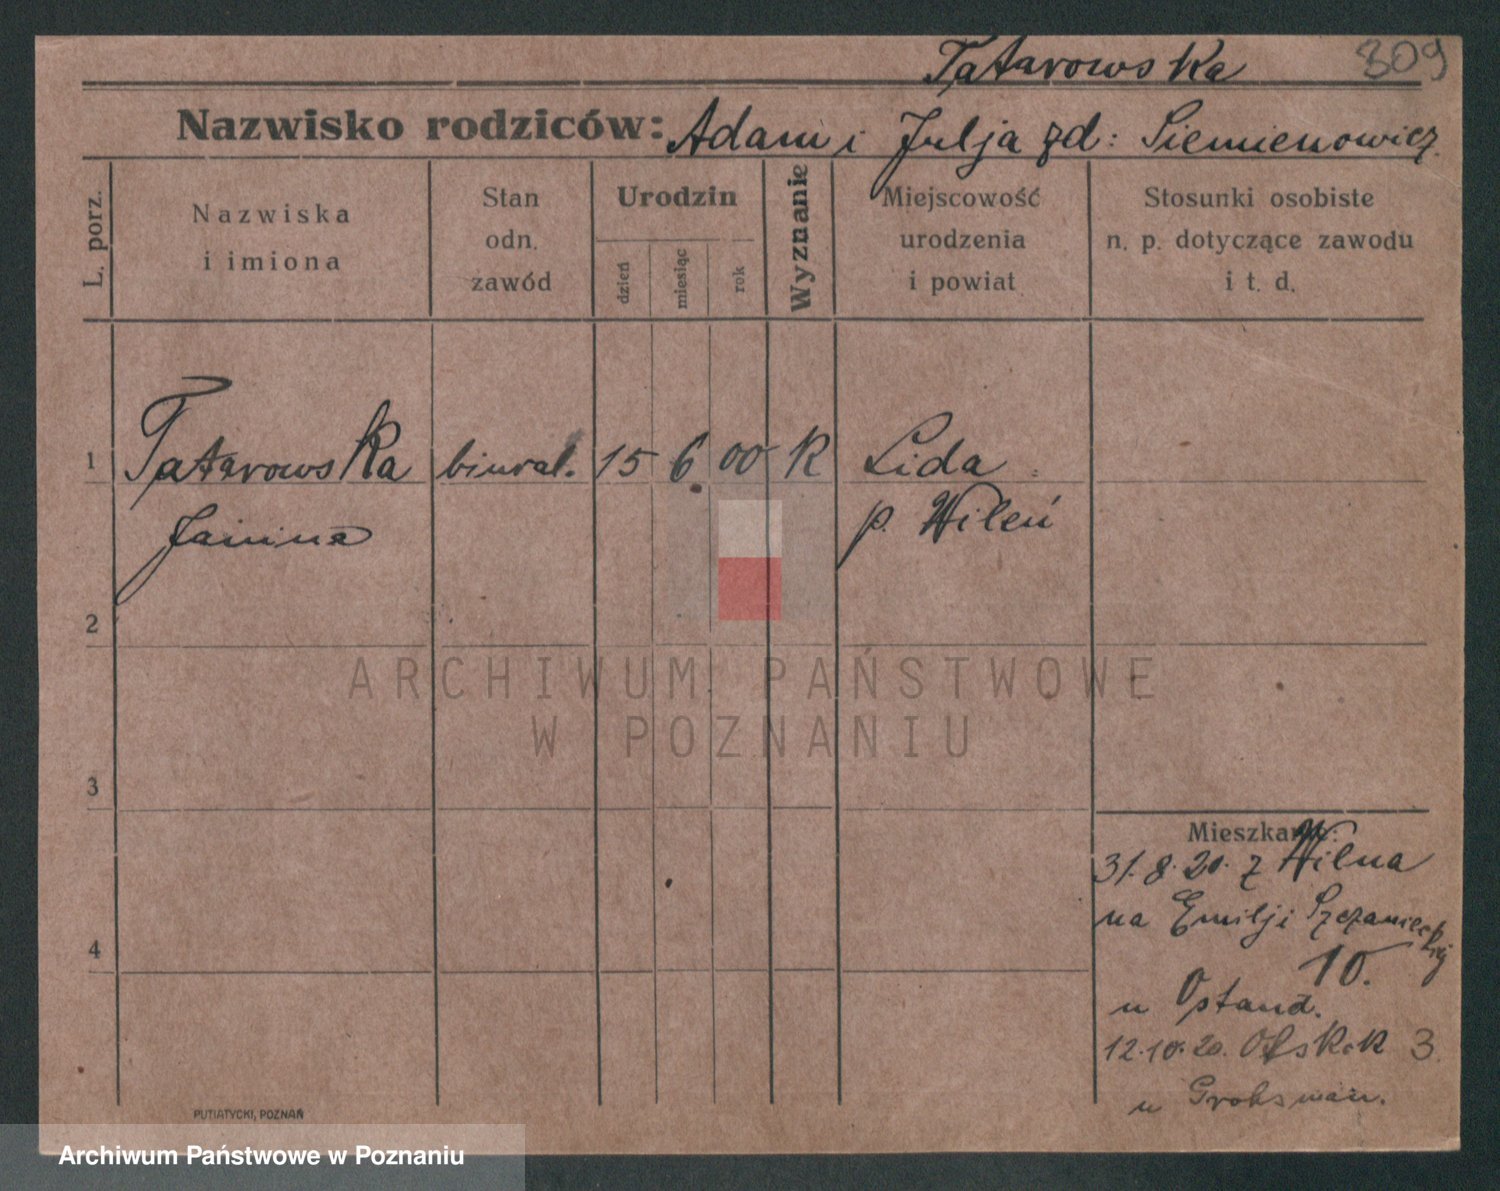 Tatarowska 309
Nazwisko rodziców: Adam i Julja zd: Siemienowicz
L. porz.
Nazwiska
i imiona
Stan
odn.
zawód
Urodzin
dzień
miesiąc
rok
Wyznanie
Miejscowość
urodzenia
i powiat
Stosunki osobiste
n. p. dotyczące zawodu
i t. d.
1 Tatarowska biural. 15 6 00 K Lida
Janina p. Wileń
2
3
4
Mieszkanie:
31.8.20. z Wilna
na Emilji Szczanieckiej
10.
u Ostand.
12.10.20. 3.
u
PUTIATYCKI, POZNAŃ
ARCHIWUM PAŃSTWOWE
W POZNANIU
Archiwum Państwowe w Poznaniu